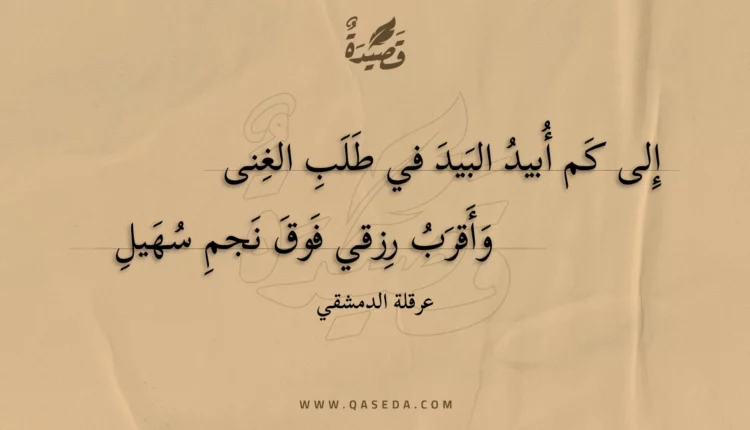 قَصِيدَةٌ
إِلى كَم أُبيدُ البَيدَ في طَلَبِ الغِنى
وَأَقرَبُ رِزقي فَوقَ نَجمِ سُهَيلِ
عرقلة الدمشقي
WWW.QASEDA.COM